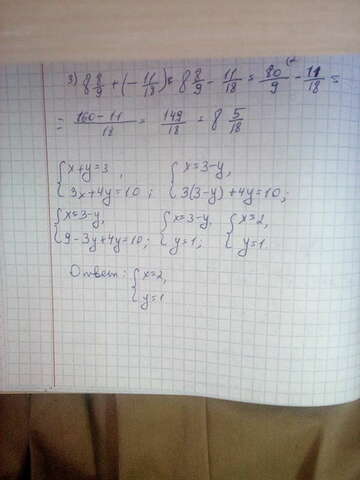 3) 8 8/9 + (- 11/18) = 8 8/9 - 11/18 = 80/9 (2 - 11/18 =
= 160-11/18 = 149/18 = 8 5/18
{x+y=3, 3x+4y=10; {x=3-y, 3(3-y)+4y=10;
{x=3-y, 9-3y+4y=10; {x=3-y, y=1; {x=2, y=1.
Ответ: {x=2, y=1